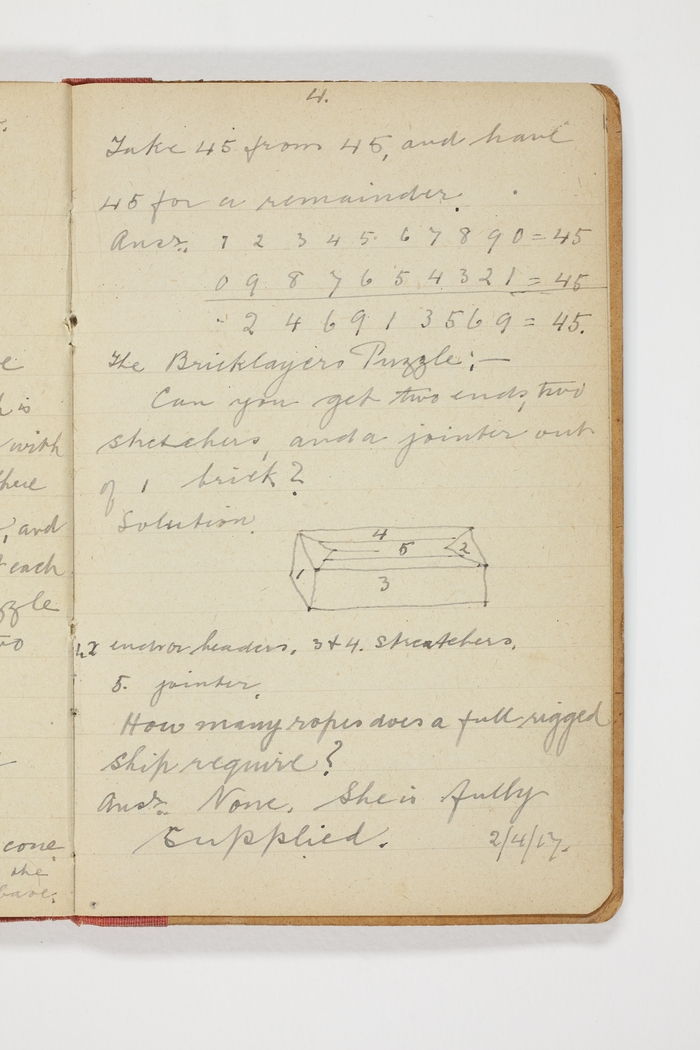 4.
Take 45 from 45, and have
45 for a remainder.
Ansr. 1 2 3 4 5 6 7 8 9 0 = 45
0 9 8 7 6 5 4 3 2 1 = 45
2 4 6 9 1 3 5 6 9 = 45.
The Bricklayers Puzzle:—
Can you get two ends, two
stretchers, and a jointer out
of 1 brick?
Solution.
4
5
2
1
3
ends or headers. 3 & 4. streatchers.
5. jointer.
How many ropes does a full rigged
ship require?
Ansr. None. She is fully
supplied. 2/4/17.
e
h is
with
there
, and
each
zzle
wo
cone
the
have.